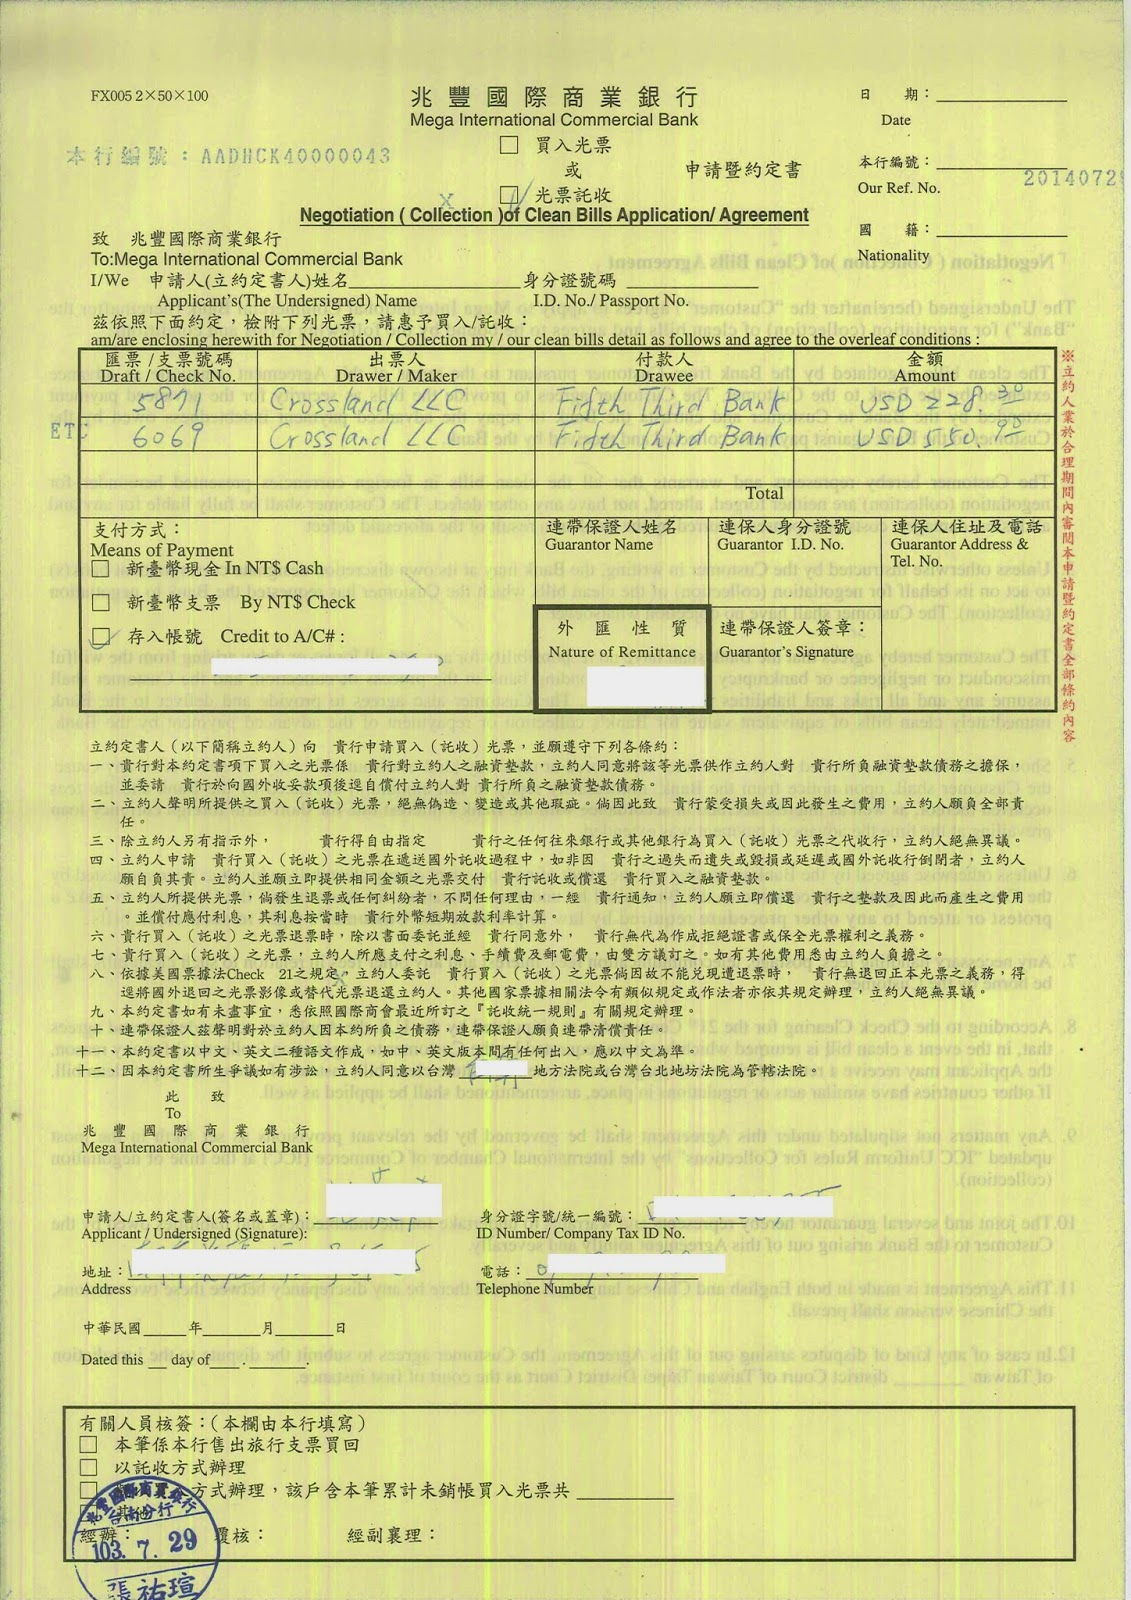 FX005 2×50×100
兆豐國際商業銀行
Mega International Commercial Bank
日 期：
Date
本行編號：AADHCK40000043
買入光票
或
申請暨約定書
光票託收
本行編號：
Our Ref. No.
20140729
Negotiation ( Collection )of Clean Bills Application/ Agreement
國 籍：
Nationality
致 兆豐國際商業銀行
To:Mega International Commercial Bank
I/We 申請人(立約定書人)姓名 身分證號碼
Applicant's(The Undersigned) Name I.D. No./ Passport No.
茲依照下面約定，檢附下列光票，請惠予買入/託收：
am/are enclosing herewith for Negotiation / Collection my / our clean bills detail as follows and agree to the overleaf conditions :
匯票/支票號碼 出票人 付款人 金額
Draft / Check No. Drawer / Maker Drawee Amount
5871 Crossland LLC Fifth Third Bank USD 228.30
ETC 6069 Crossland LLC Fifth Third Bank USD 550.90
Total
※立約人業於合理期間內審閱本申請暨約定書全部條約內容
支付方式： 連帶保證人姓名 連保人身分證號 連保人住址及電話
Means of Payment Guarantor Name Guarantor I.D. No. Guarantor Address &
Tel. No.
新臺幣現金 In NT$ Cash
新臺幣支票 By NT$ Check
外匯性質 連帶保證人簽章：
存入帳號 Credit to A/C#：
Nature of Remittance Guarantor's Signature
立約定書人（以下簡稱立約人）向 貴行申請買入（託收）光票，並願遵守下列各條約：
一、貴行對本約定書項下買入之光票係 貴行對立約人之融資墊款，立約人同意將該等光票供作立約人對 貴行所負融資墊款債務之擔保，
並委請 貴行於向國外收妥款項後逕自償付立約人對 貴行所負之融資墊款債務。
二、立約人聲明所提供之買入（託收）光票，絕無偽造、變造或其他瑕疵。倘因此致 貴行蒙受損失或因此發生之費用，立約人願負全部責
任。
三、除立約人另有指示外， 貴行得自由指定 貴行之任何往來銀行或其他銀行為買入（託收）光票之代收行，立約人絕無異議。
四、立約人申請 貴行買入（託收）之光票在遞送國外託收過程中，如非因 貴行之過失而遺失或毀損或延遲或國外託收行倒閉者，立約人
願自負其責。立約人並願立即提供相同金額之光票交付 貴行託收或償還 貴行買入之融資墊款。
五、立約人所提供光票，倘發生退票或任何糾紛者，不問任何理由，一經 貴行通知，立約人願立即償還 貴行之墊款及因此而產生之費用
。並償付應付利息，其利息按當時 貴行外幣短期放款利率計算。
六、貴行買入（託收）之光票退票時，除以書面委託並經 貴行同意外， 貴行無代為作成拒絕證書或保全光票權利之義務。
七、貴行買入（託收）之光票，立約人所應支付之利息、手續費及郵電費，由雙方議訂之。如有其他費用悉由立約人負擔之。
八、依據美國票據法Check 21之規定，立約人委託 貴行買入（託收）之光票倘因故不能兌現遭退票時， 貴行無退回正本光票之義務，得
逕將國外退回之光票影像或替代光票退還立約人。其他國家票據相關法令有類似規定或作法者亦依其規定辦理，立約人絕無異議。
九、本約定書如有未盡事宜，悉依照國際商會最近所訂之『託收統一規則』有關規定辦理。
十、連帶保證人茲聲明對於立約人因本約所負之債務，連帶保證人願負連帶清償責任。
十一、本約定書以中文、英文二種語文作成，如中、英文版本間有任何出入，應以中文為準。
十二、因本約定書所生爭議如有涉訟，立約人同意以台灣 地方法院或台灣台北地坊法院為管轄法院。
此 致
To
兆豐國際商業銀行
Mega International Commercial Bank
申請人/立約定書人(簽名或蓋章)： 身分證字號/統一編號：
Applicant / Undersigned (Signature): ID Number/ Company Tax ID No.
地址： 電話：
Address Telephone Number
中華民國 年 月 日
Dated this day of . .
有關人員核簽：(本欄由本行填寫)
本筆係本行售出旅行支票買回
以託收方式辦理
方式辦理，該戶含本筆累計未銷帳買入光票共
其他
經辦： 覆核： 經副襄理：
兆豐國際商業銀行
台南分行
103. 7. 29
張祐瑄